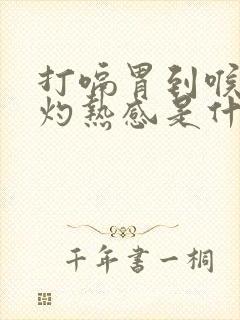 打嗝胃到喉
灼热感是什
千年书一桐